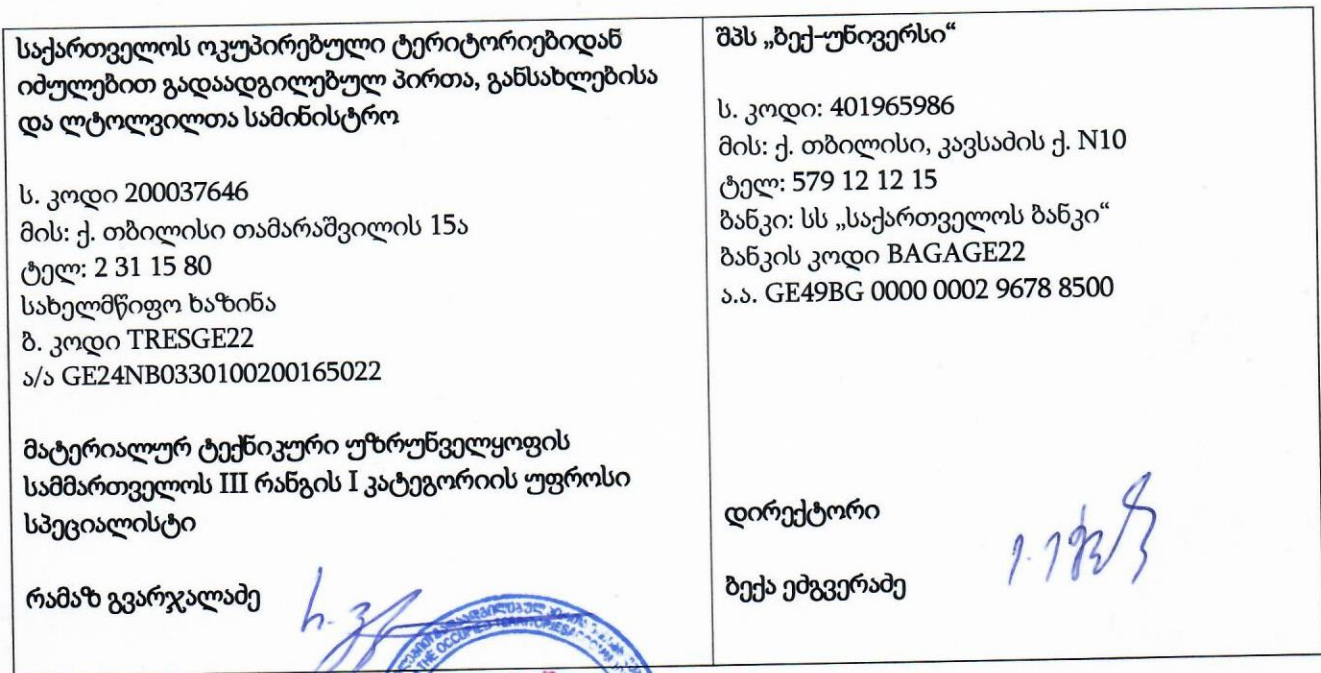 საქართველოს ოკუპირებული ტერიტორიებიდან
იძულებით გადაადგილებულ პირთა, განსახლებისა
და ლტოლვილთა სამინისტრო
ს. კოდი 200037646
მის: ქ. თბილისი თამარაშვილის 15ა
ტელ: 2 31 15 80
სახელმწიფო ხაზინა
ბ. კოდი TRESGE22
ა/ა GE24NB0330100200165022
მატერიალურ ტექნიკური უზრუნველყოფის
სამმართველოს III რანგის I კატეგორიის უფროსი
სპეციალისტი
რამაზ გვარჯალაძე
THE OCCUPIED TERRITORIES
შპს „ბექ-უნივერსი“
ს. კოდი: 401965986
მის: ქ. თბილისი, კავსაძის ქ. N10
ტელ: 579 12 12 15
ბანკი: სს „საქართველოს ბანკი“
ბანკის კოდი BAGAGE22
ა.ა. GE49BG 0000 0002 9678 8500
დირექტორი
ბექა ეძგვერაძე